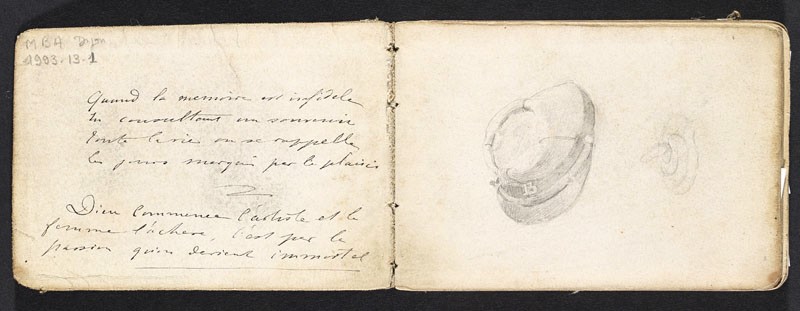 MBA Dijon
1993-13-1
Quand la memoire est infidele
En consultant un souvenir
Toute la vie on se rappelle
les jours marqué par le plaisir
Dieu commence l'artiste et la
femme l'achève, c'est par la
passion qu'on devient immortel
13